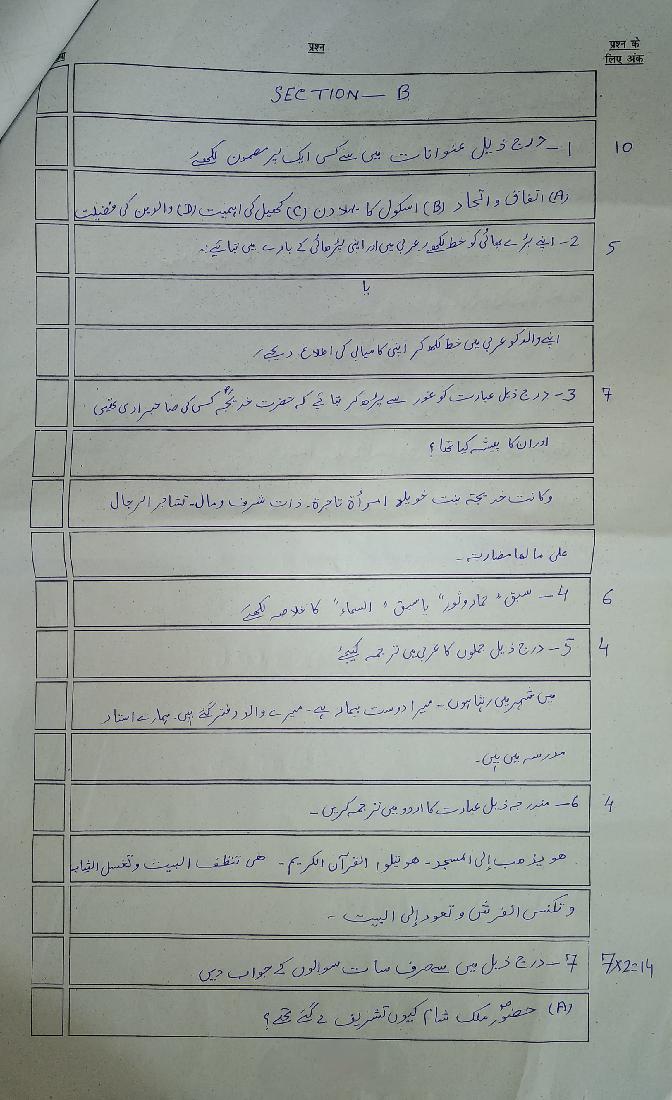 प्रश्न
प्रश्न के
लिए अंक
SECTION — B
1- درج ذیل عنوانات میں سے کسی ایک پر مضمون لکھئے 10
(A) اتفاق و اتحاد (B) اسکول کا پہلا دن (C) کھیل کی اہمیت (D) والدین کی فضیلت
2- اپنے بڑے بھائی کو خط لکھو عربی میں اور اپنی پڑھائی کے بارے میں بتائیے۔ 5
یا
اپنے والد کو عربی میں خط لکھ کر اپنی کامیابی کی اطلاع دیجئے
3- درج ذیل عبارت کو غور سے پڑھ کر بتائیے کہ حضرت خدیجہؓ کس کی صاحبزادی تھیں 7
اور ان کا پیشہ کیا تھا؟
وکانت خدیجۃ بنت خویلد امرأۃ تاجرۃ۔ ذات شرف ومال۔ تستاجر الرجال
علی مالھا مضاربۃ۔
4- سبق "حمار وثور" یا سبق "السماء" کا خلاصہ لکھئے 6
5- درج ذیل جملوں کا عربی میں ترجمہ کیجئے 4
میں شہر میں رہتا ہوں۔ میرا دوست بیمار ہے۔ میرے والد دفتر گئے ہیں۔ ہمارے استاد
مدرسہ میں ہیں۔
6- مندرجہ ذیل عبارت کا اردو میں ترجمہ کریں۔ 4
ھو یذھب إلی المسجد۔ ھو یتلوا القرآن الکریم۔ ھی تنظف البیت وتغسل الثیاب
وتکنس الفرش وتعود إلی البیت۔
7- درج ذیل میں سے صرف سات سوالوں کے جواب دیں 7x2=14
(A) حضورؐ ملک شام کیوں تشریف لے گئے تھے؟